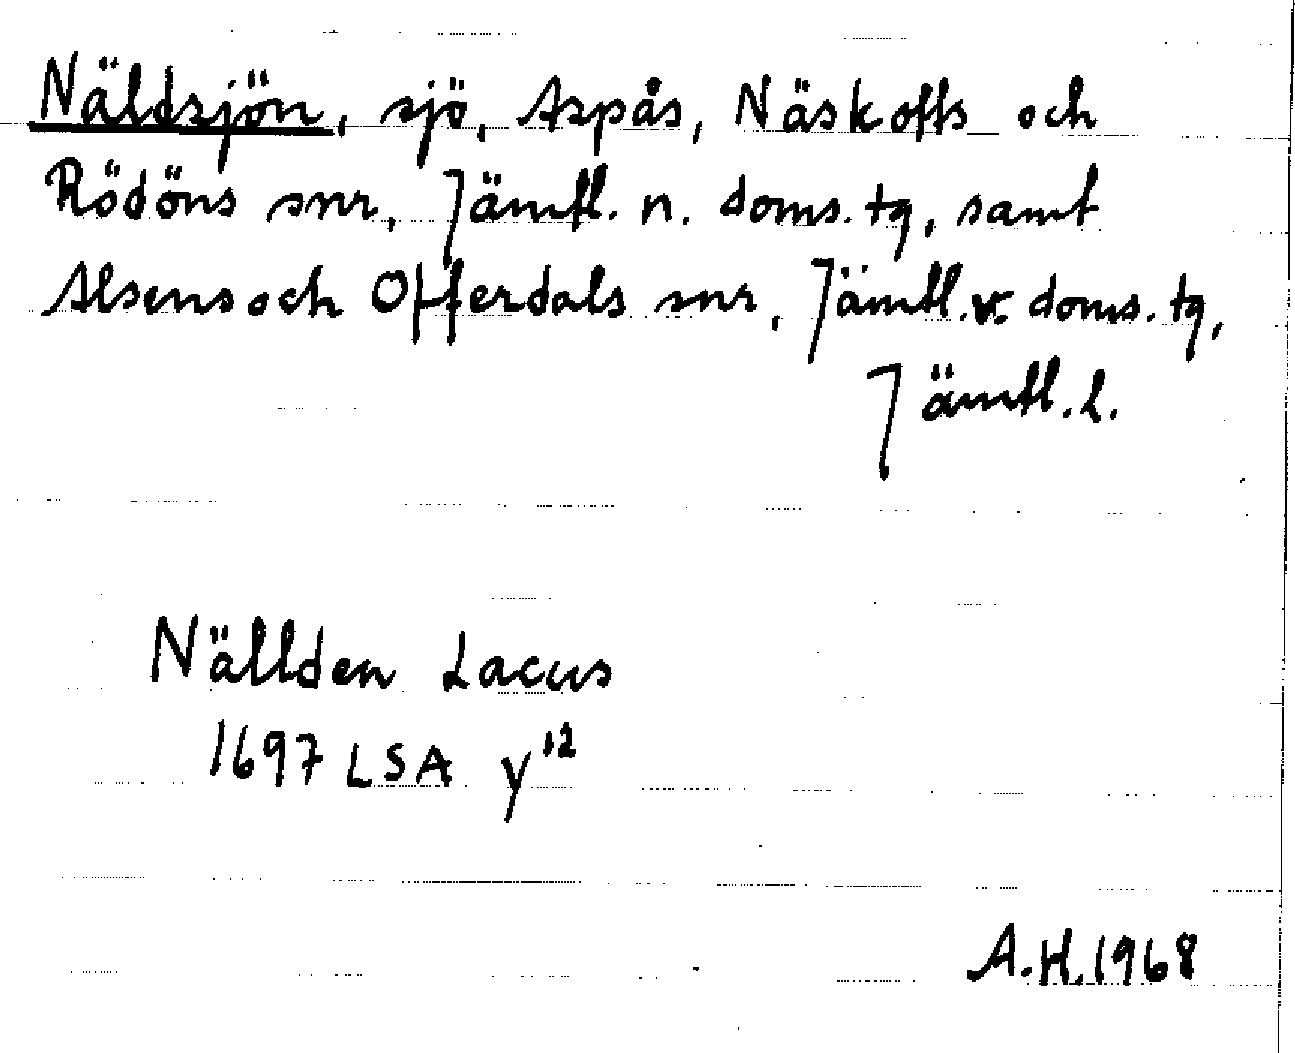 Näldsjön, sjö, Aspås, Näskotts och
Rödöns snr, Jämtl. n. doms. tg, samt
Alsens och Offerdals snr, Jämtl. v. doms. tg,
Jämtl. l.
Nällden Lacus
1697 LSA y 12
A.H. 1968